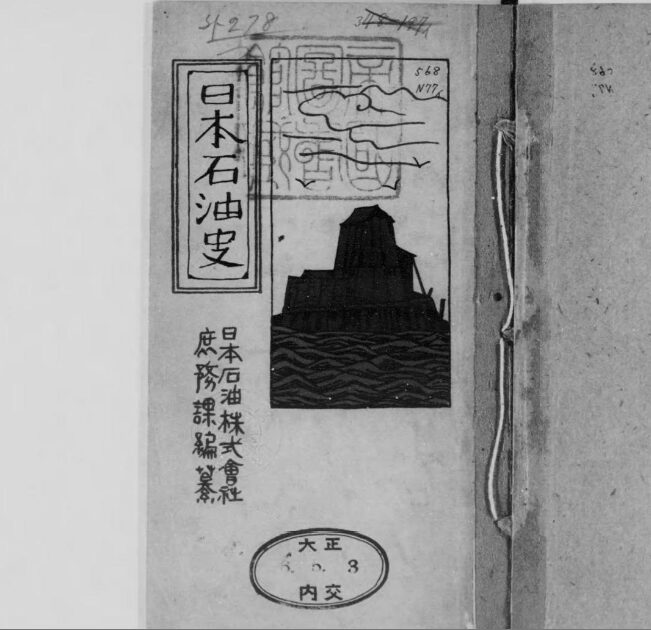 外278
348-127
568
N77
日本石油史
日本石油株式會社
庶務課編纂
正大
6. 5. 3
交内